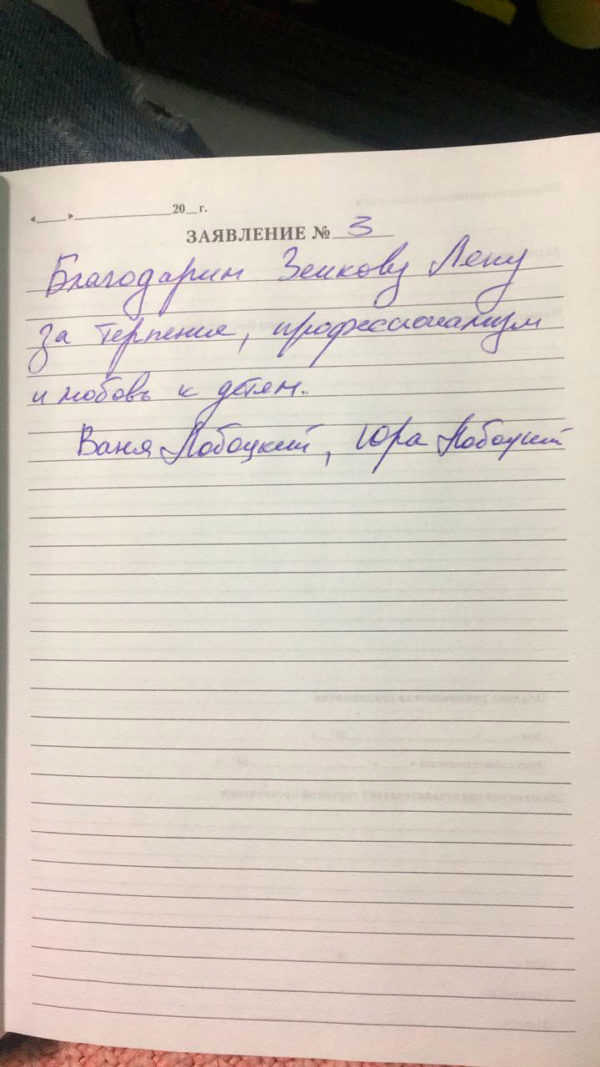 «____»______________20__г.
ЗАЯВЛЕНИЕ № 3
Благодарим Зенкову Лену
за терпение, профессионализм
и любовь к детям.
Ваня Лобоцкий, Юра Лобоцкий